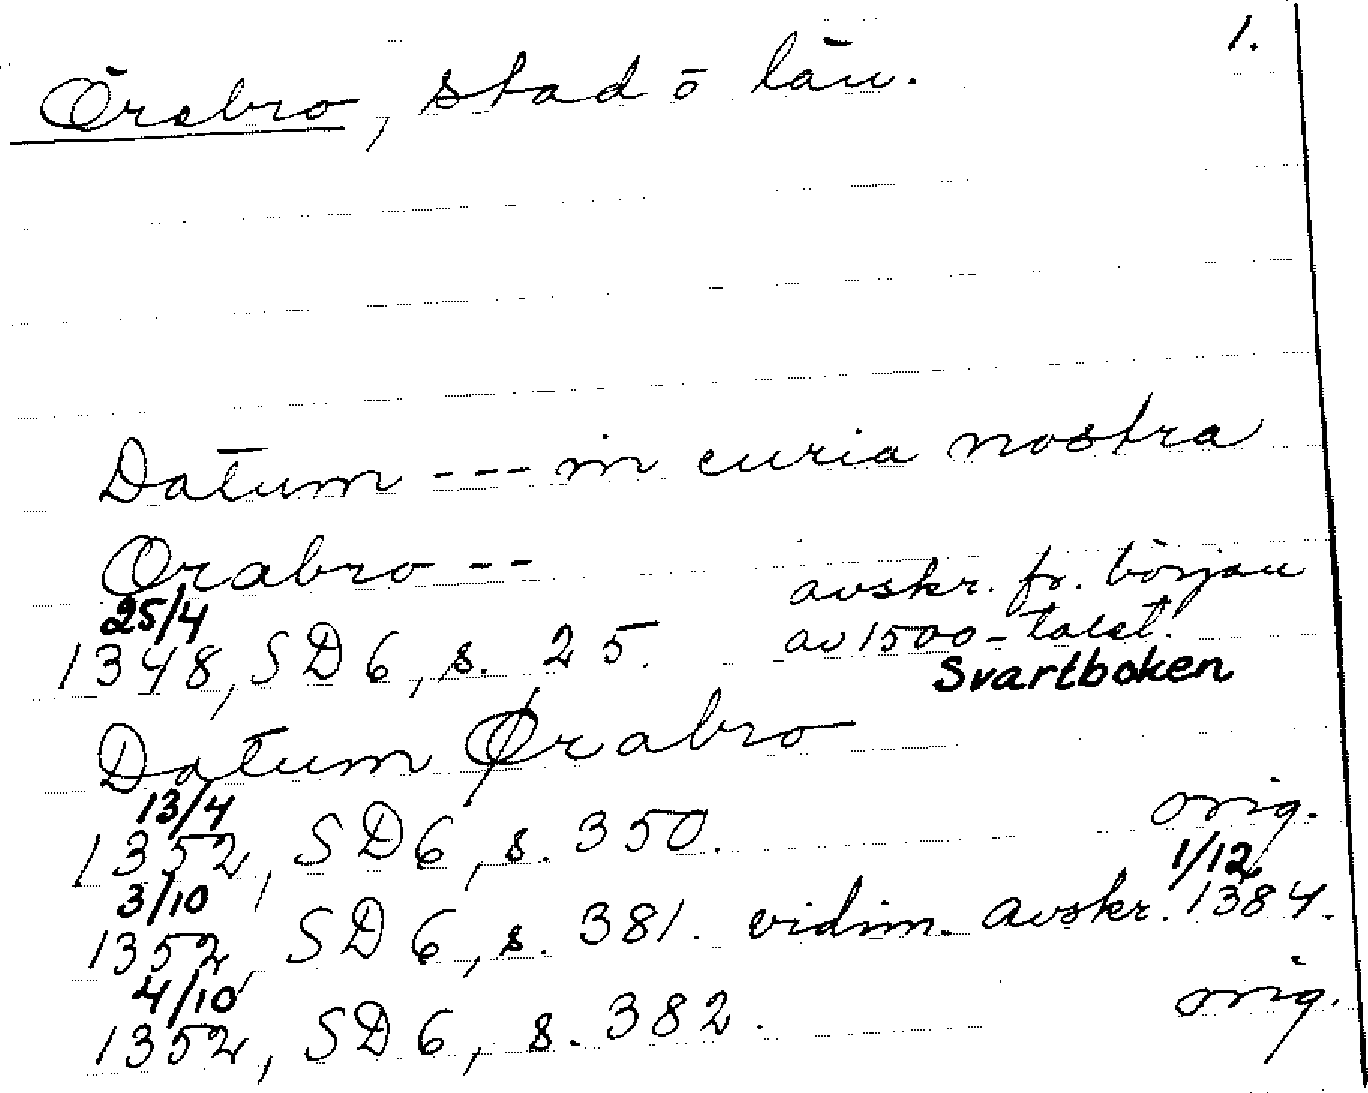 1.
Örebro, stad ō län.
Datum --- in curia nostra
Orabro --
avskr. fr. början
25/4
1348, SD 6, s. 25.
av 1500-talet.
Svartboken
Datum Ørabro
13/4
1352, SD 6, s. 350.
orig.
3/10
1352, SD 6, s. 381. vidim. avskr. 1384.
1/12
4/10
1352, SD 6, s. 382.
orig.